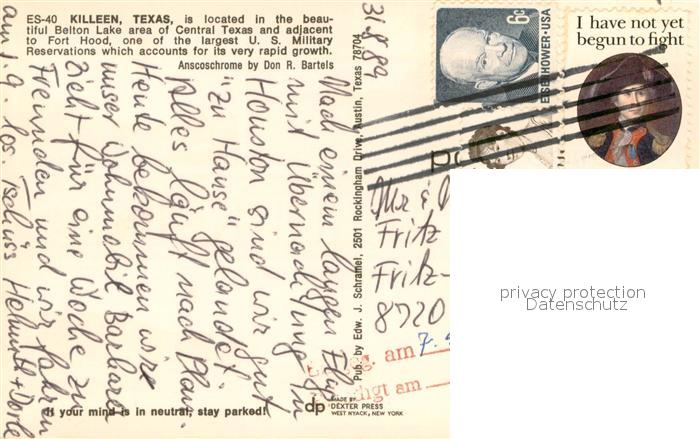 ES-40 KILLEEN, TEXAS, is located in the beau-
tiful Belton Lake area of Central Texas and adjacent
to Fort Hood, one of the largest U. S. Military
Reservations which accounts for its very rapid growth.
Anscoschrome by Don R. Bartels
31.8.89
Nach einem langen Flug
mit Übernachtung in
Houston sind wir gut
"zu Hause" gelandet.
Alles läuft nach Plan.
Heute bekommen wir
unser Wohnmobil Barbara
zieht für eine Woche zu
Freunden und wir fahren
am 1.9. los. Tschüss Helmut + Dorle
If your mind is in neutral, stay parked!
Pub. by Edw. J. Schramel, 2501 Rockingham Drive, Austin, Texas 78704
dp
MADE BY
DEXTER PRESS
WEST NYACK, NEW YORK
6c
EISENHOWER·USA
I have not yet
begun to fight
Mr &
Fritz
Fritz-
8720
am 7.
am
privacy protection
Datenschutz